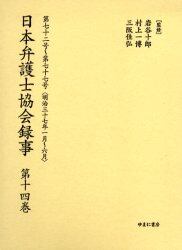 ［監修］
岩谷十郎
村上一博
三阪佳弘
第七十二号～第七十七号（明治三十七年一月～六月）
日本弁護士協会録事
第十四巻
ゆまに書房